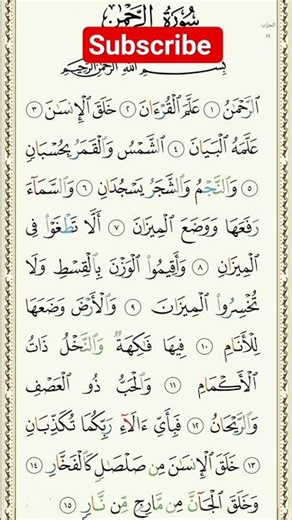 سُورَةُ الرَّحْمَٰن
الحزب
٥٤
Subscribe
بِسْمِ اللَّهِ الرَّحْمَٰنِ الرَّحِيمِ
ٱلرَّحْمَٰنُ ١ عَلَّمَ ٱلْقُرْءَانَ ٢ خَلَقَ ٱلْإِنسَٰنَ ٣
عَلَّمَهُ ٱلْبَيَانَ ٤ ٱلشَّمْسُ وَٱلْقَمَرُ بِحُسْبَانٍ
٥ وَٱلنَّجْمُ وَٱلشَّجَرُ يَسْجُدَانِ ٦ وَٱلسَّمَآءَ
رَفَعَهَا وَوَضَعَ ٱلْمِيزَانَ ٧ أَلَّا تَطْغَوْا۟ فِى
ٱلْمِيزَانِ ٨ وَأَقِيمُوا۟ ٱلْوَزْنَ بِٱلْقِسْطِ وَلَا
تُخْسِرُوا۟ ٱلْمِيزَانَ ٩ وَٱلْأَرْضَ وَضَعَهَا
لِلْأَنَامِ ١٠ فِيهَا فَٰكِهَةٌ وَٱلنَّخْلُ ذَاتُ
ٱلْأَكْمَامِ ١١ وَٱلْحَبُّ ذُو ٱلْعَصْفِ
وَٱلرَّيْحَانُ ١٢ فَبِأَىِّ ءَالَآءِ رَبِّكُمَا تُكَذِّبَانِ
١٣ خَلَقَ ٱلْإِنسَٰنَ مِن صَلْصَٰلٍ كَٱلْفَخَّارِ ١٤
وَخَلَقَ ٱلْجَآنَّ مِن مَّارِجٍ مِّن نَّارٍ ١٥